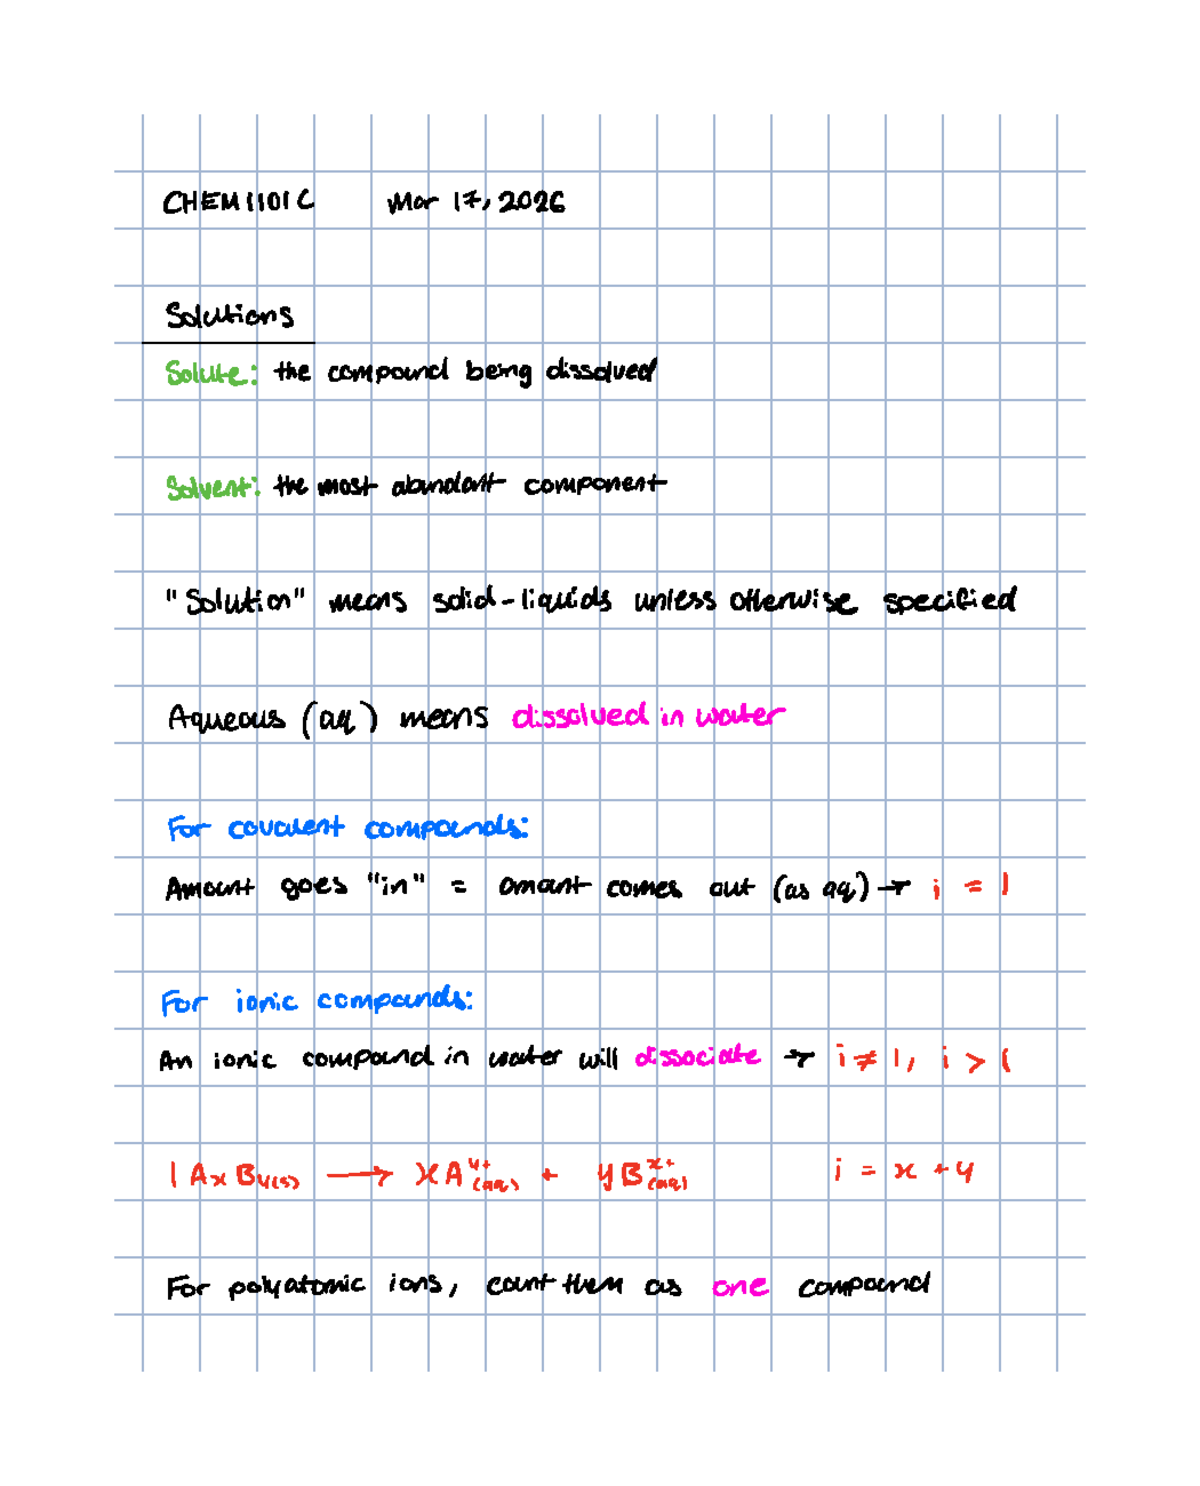 CHEM1101C Mar 17, 2026
Solutions
Solute: the compound being dissolved
Solvent: the most abundant component
"Solution" means solid-liquids unless otherwise specified
Aqueous (aq) means dissolved in water
For covalent compounds:
Amount goes "in" = amount comes out (as aq) → i = 1
For ionic compounds:
An ionic compound in water will dissociate → i ≠ 1, i > 1
1 AxBy(s) ⟶ xA^y+(aq) + yB^x+(aq) i = x + y
For polyatomic ions, count them as one compound